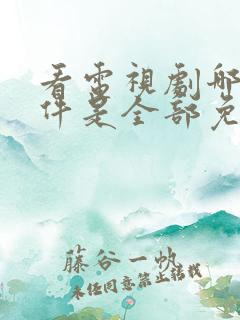 看電視劇哪
件是全部免
藤谷一帆
未经同意禁止转载